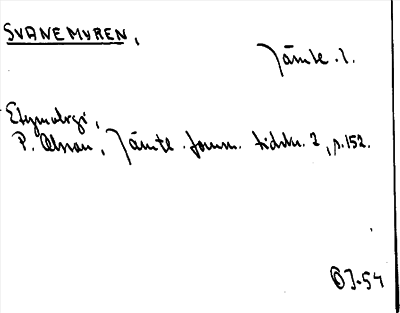 SVANEMYREN,
Jämte. l.
Etymologi,
P. Olsson, Jämtl. fornm. tidskr. 2, s. 152.
OJ-54